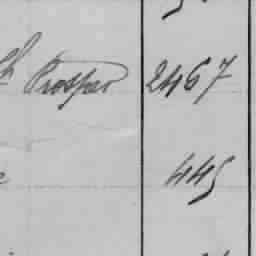 Prosper 2467
445